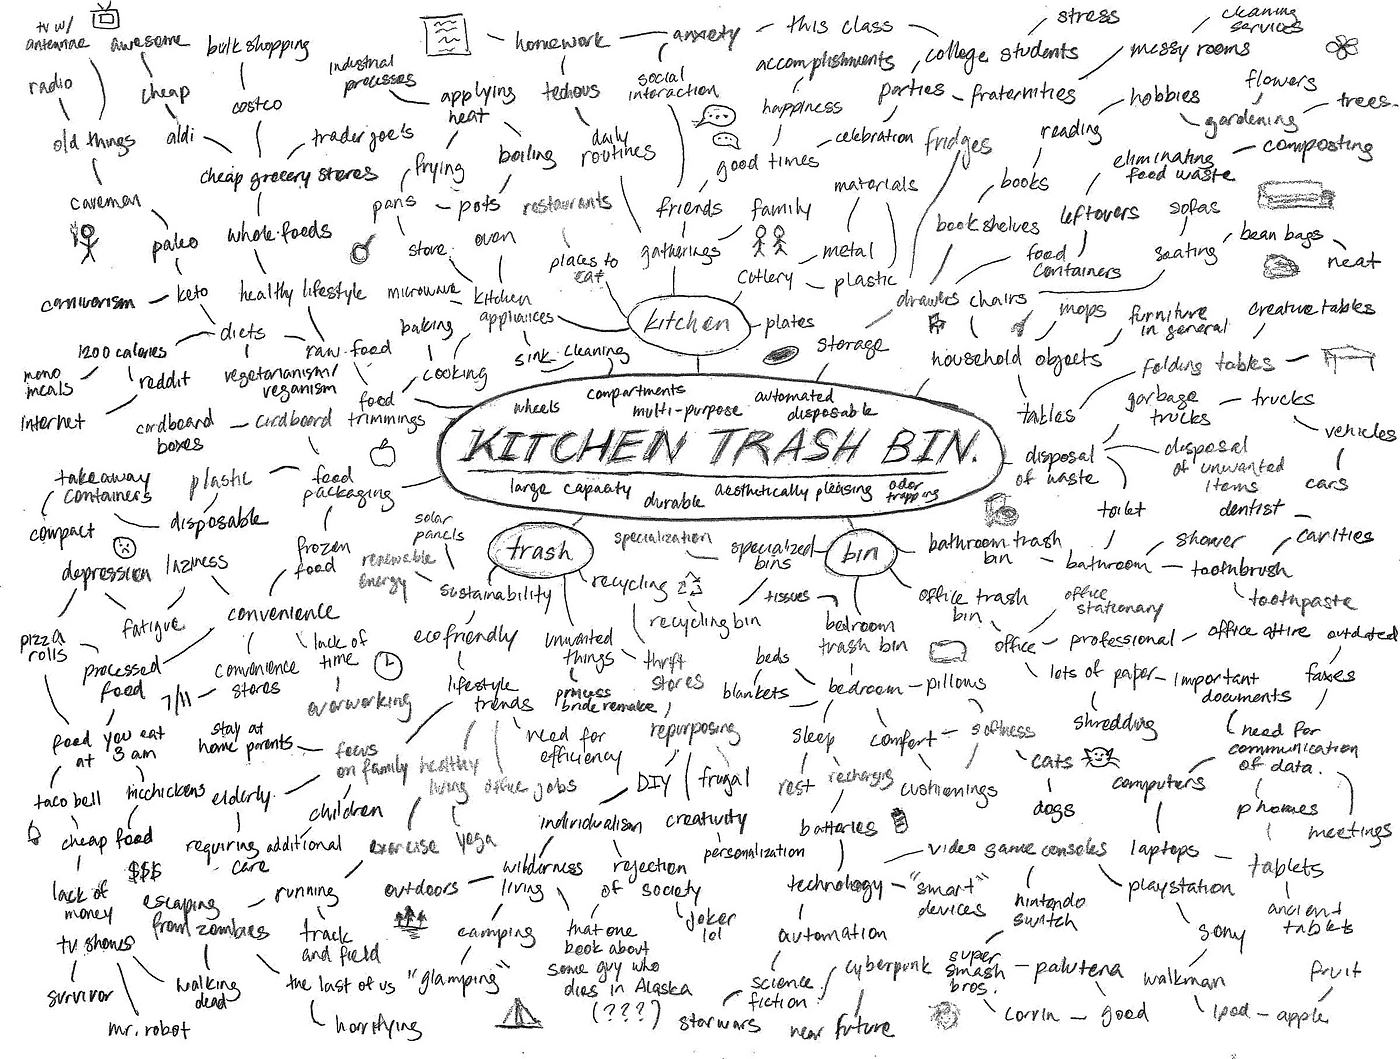 tv w/
antennae
awesome
bulk shopping
homework
anxiety
this class
stress
cleaning
services
radio
cheap
costco
industrial
processes
applying
heat
tedious
social
interaction
accomplishments
college students
messy rooms
happiness
parties
fraternities
hobbies
flowers
trees
gardening
old things
aldi
trader joe's
cheap grocery stores
frying
boiling
daily
routines
good times
celebration
fridges
reading
eliminating
food waste
composting
caveman
paleo
whole foods
pans
pots
restaurants
friends
family
materials
books
book shelves
leftovers
sofas
bean bags
neat
carnivorism
keto
healthy lifestyle
stove
oven
microwave
kitchen
appliances
places to
eat
gatherings
cutlery
metal
plastic
drawers
chairs
food
containers
seating
diets
raw food
baking
cooking
sink
cleaning
kitchen
plates
storage
household objects
mops
furniture
in general
creative tables
1200 calories
mono
meals
reddit
internet
vegetarianism/
veganism
food
trimmings
folding tables
tables
garbage
trucks
trucks
vehicles
cars
cardboard
boxes
cardboard
wheels
compartments
multi-purpose
automated
disposable
KITCHEN TRASH BIN.
large capacity
durable
aesthetically pleasing
odor
trapping
disposal
of waste
disposal
of unwanted
items
takeaway
containers
plastic
food
packaging
compact
disposable
solar
panels
trash
specialization
specialized
bins
bin
bathroom trash
bin
toilet
dentist
cavities
shower
bathroom
toothbrush
toothpaste
depression
laziness
frozen
food
renewable
energy
sustainability
recycling
tissues
office trash
bin
office
stationary
pizza
rolls
fatigue
convenience
ecofriendly
unwanted
things
recycling bin
bedroom
trash bin
office
professional
office attire
outdated
processed
food
lack of
time
convenience
stores
7/11
overworking
lifestyle
trends
princess
bride remake
thrift
stores
beds
blankets
bedroom
pillows
lots of paper
important
documents
faxes
food you eat
at 3 am
stay at
home parents
focus
on family
healthy
living
need for
efficiency
repurposing
sleep
comfort
softness
shredding
need for
communication
of data.
taco bell
mcchickens
elderly
children
office jobs
DIY
frugal
rest
recharging
cushionings
cats
dogs
computers
phones
meetings
cheap food
$$$
requiring additional
care
exercise
yoga
individualism
creativity
personalization
batteries
video game consoles
laptops
tablets
lack of
money
escaping
from zombies
running
outdoors
wilderness
living
rejection
of society
technology
"smart"
devices
nintendo
switch
playstation
ancient
tablets
tv shows
track
and field
camping
that one
book about
some guy who
dies in Alaska
(???)
joker
lol
automation
sony
survivor
walking
dead
the last of us
"glamping"
science
fiction
cyberpunk
super
smash
bros.
palutena
walkman
fruit
mr. robot
horrifying
star wars
near future
corrin
good
ipod
apple